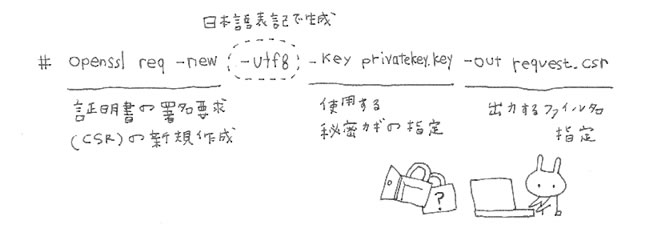 日本語表記で生成
# openssl req -new -utf8 -key privatekey.key -out request.csr
証明書の署名要求
(CSR)の新規作成
使用する
秘密カギの指定
出力するファイル名
指定
?